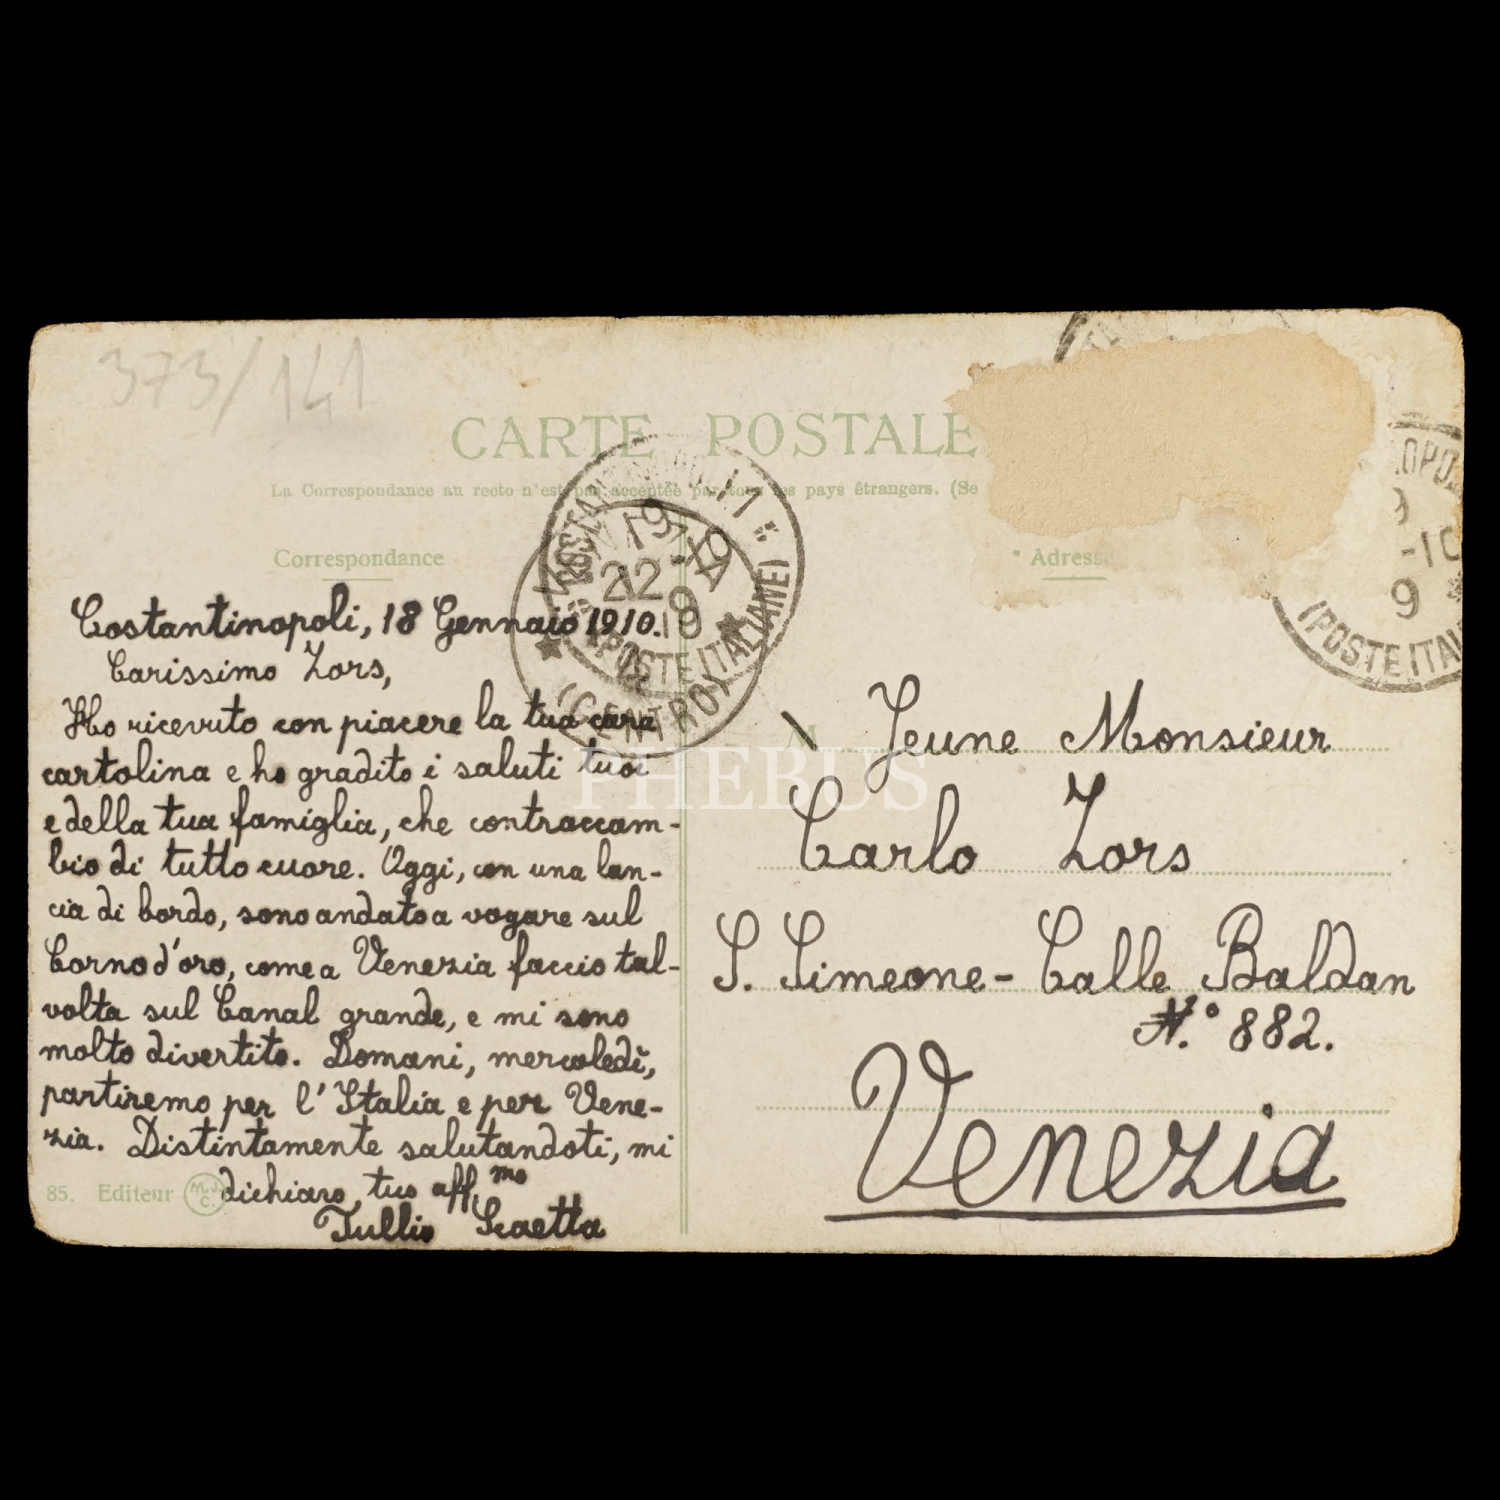 373/141
CARTE POSTALE
La Correspondance au recto n'est pas acceptée par tous les pays étrangers. (Se
Correspondance
Adresse
COSTANTINOPOLI
(POSTE ITALIANE)
(CENTRO)
-10
9
(POSTE ITAL
Costantinopoli, 18 Gennaio 1910.
Carissimo Zors,
Ho ricevuto con piacere la tua cara
cartolina e ho gradito i saluti tuoi
e della tua famiglia, che contraccam-
bio di tutto cuore. Oggi, con una lan-
cia di bordo, sono andato a vogare sul
Corno d'oro, come a Venezia faccio tal-
volta sul Canal grande, e mi sono
molto divertito. Domani, mercoledì,
partiremo per l'Italia e per Vene-
zia. Distintamente salutandoti, mi
dichiaro, tuo aff.mo
Tullio Scaetta
85. Editeur M.J.C.
M Jeune Monsieur
Carlo Zors
S. Simeone - Calle Baldan
N.° 882.
Venezia
PHEBUS